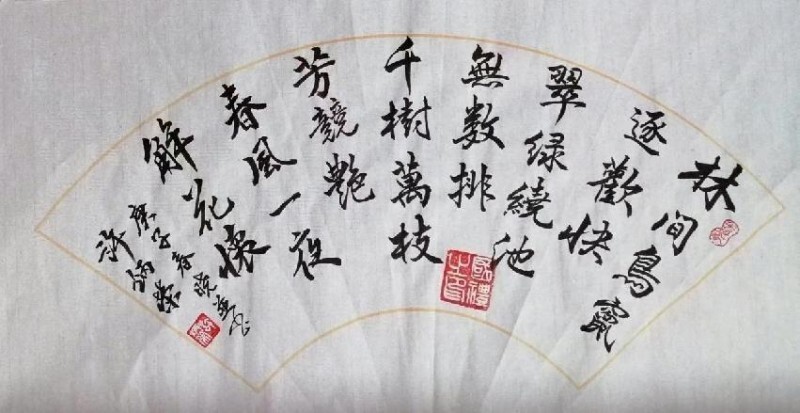 林间鳥竄
逐歡快
翠绿繞池
無数排
千樹萬枝
芳競艷
春風一夜
解花懷
庚子春
許
國禮之印